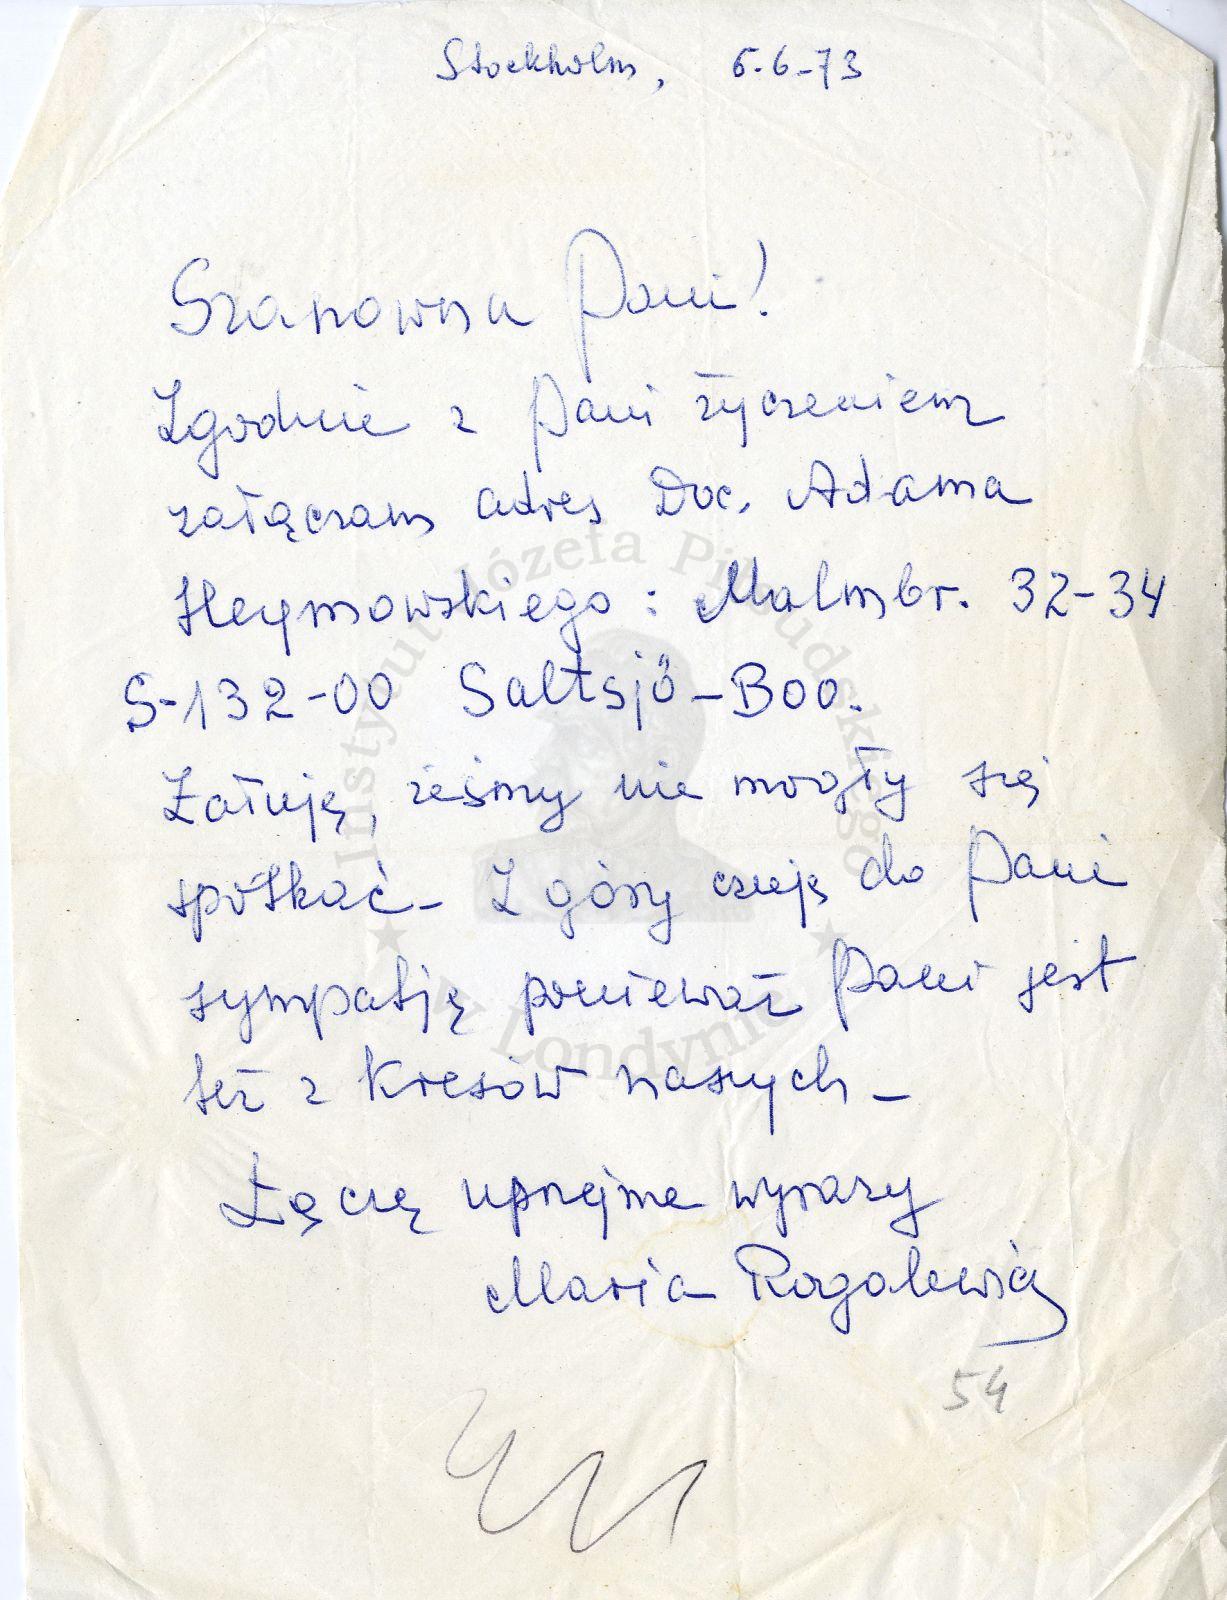 Stockholm, 5.6-73
Szanowna Pani!
Zgodnie z Pani życzeniem
załączam adres Doc. Adama
Heymowskiego: Malmbr. 32-34
S-132-00 Saltsjö-Boo.
Żałuję, żeśmy nie mogły się
spotkać- Z góry czuję do Pani
sympatję ponieważ Pani jest
też z Kresów naszych-
Łączę uprzejme wyrazy
Maria Rogalewicz
54
Instytut Józefa Piłsudskiego
w Londynie